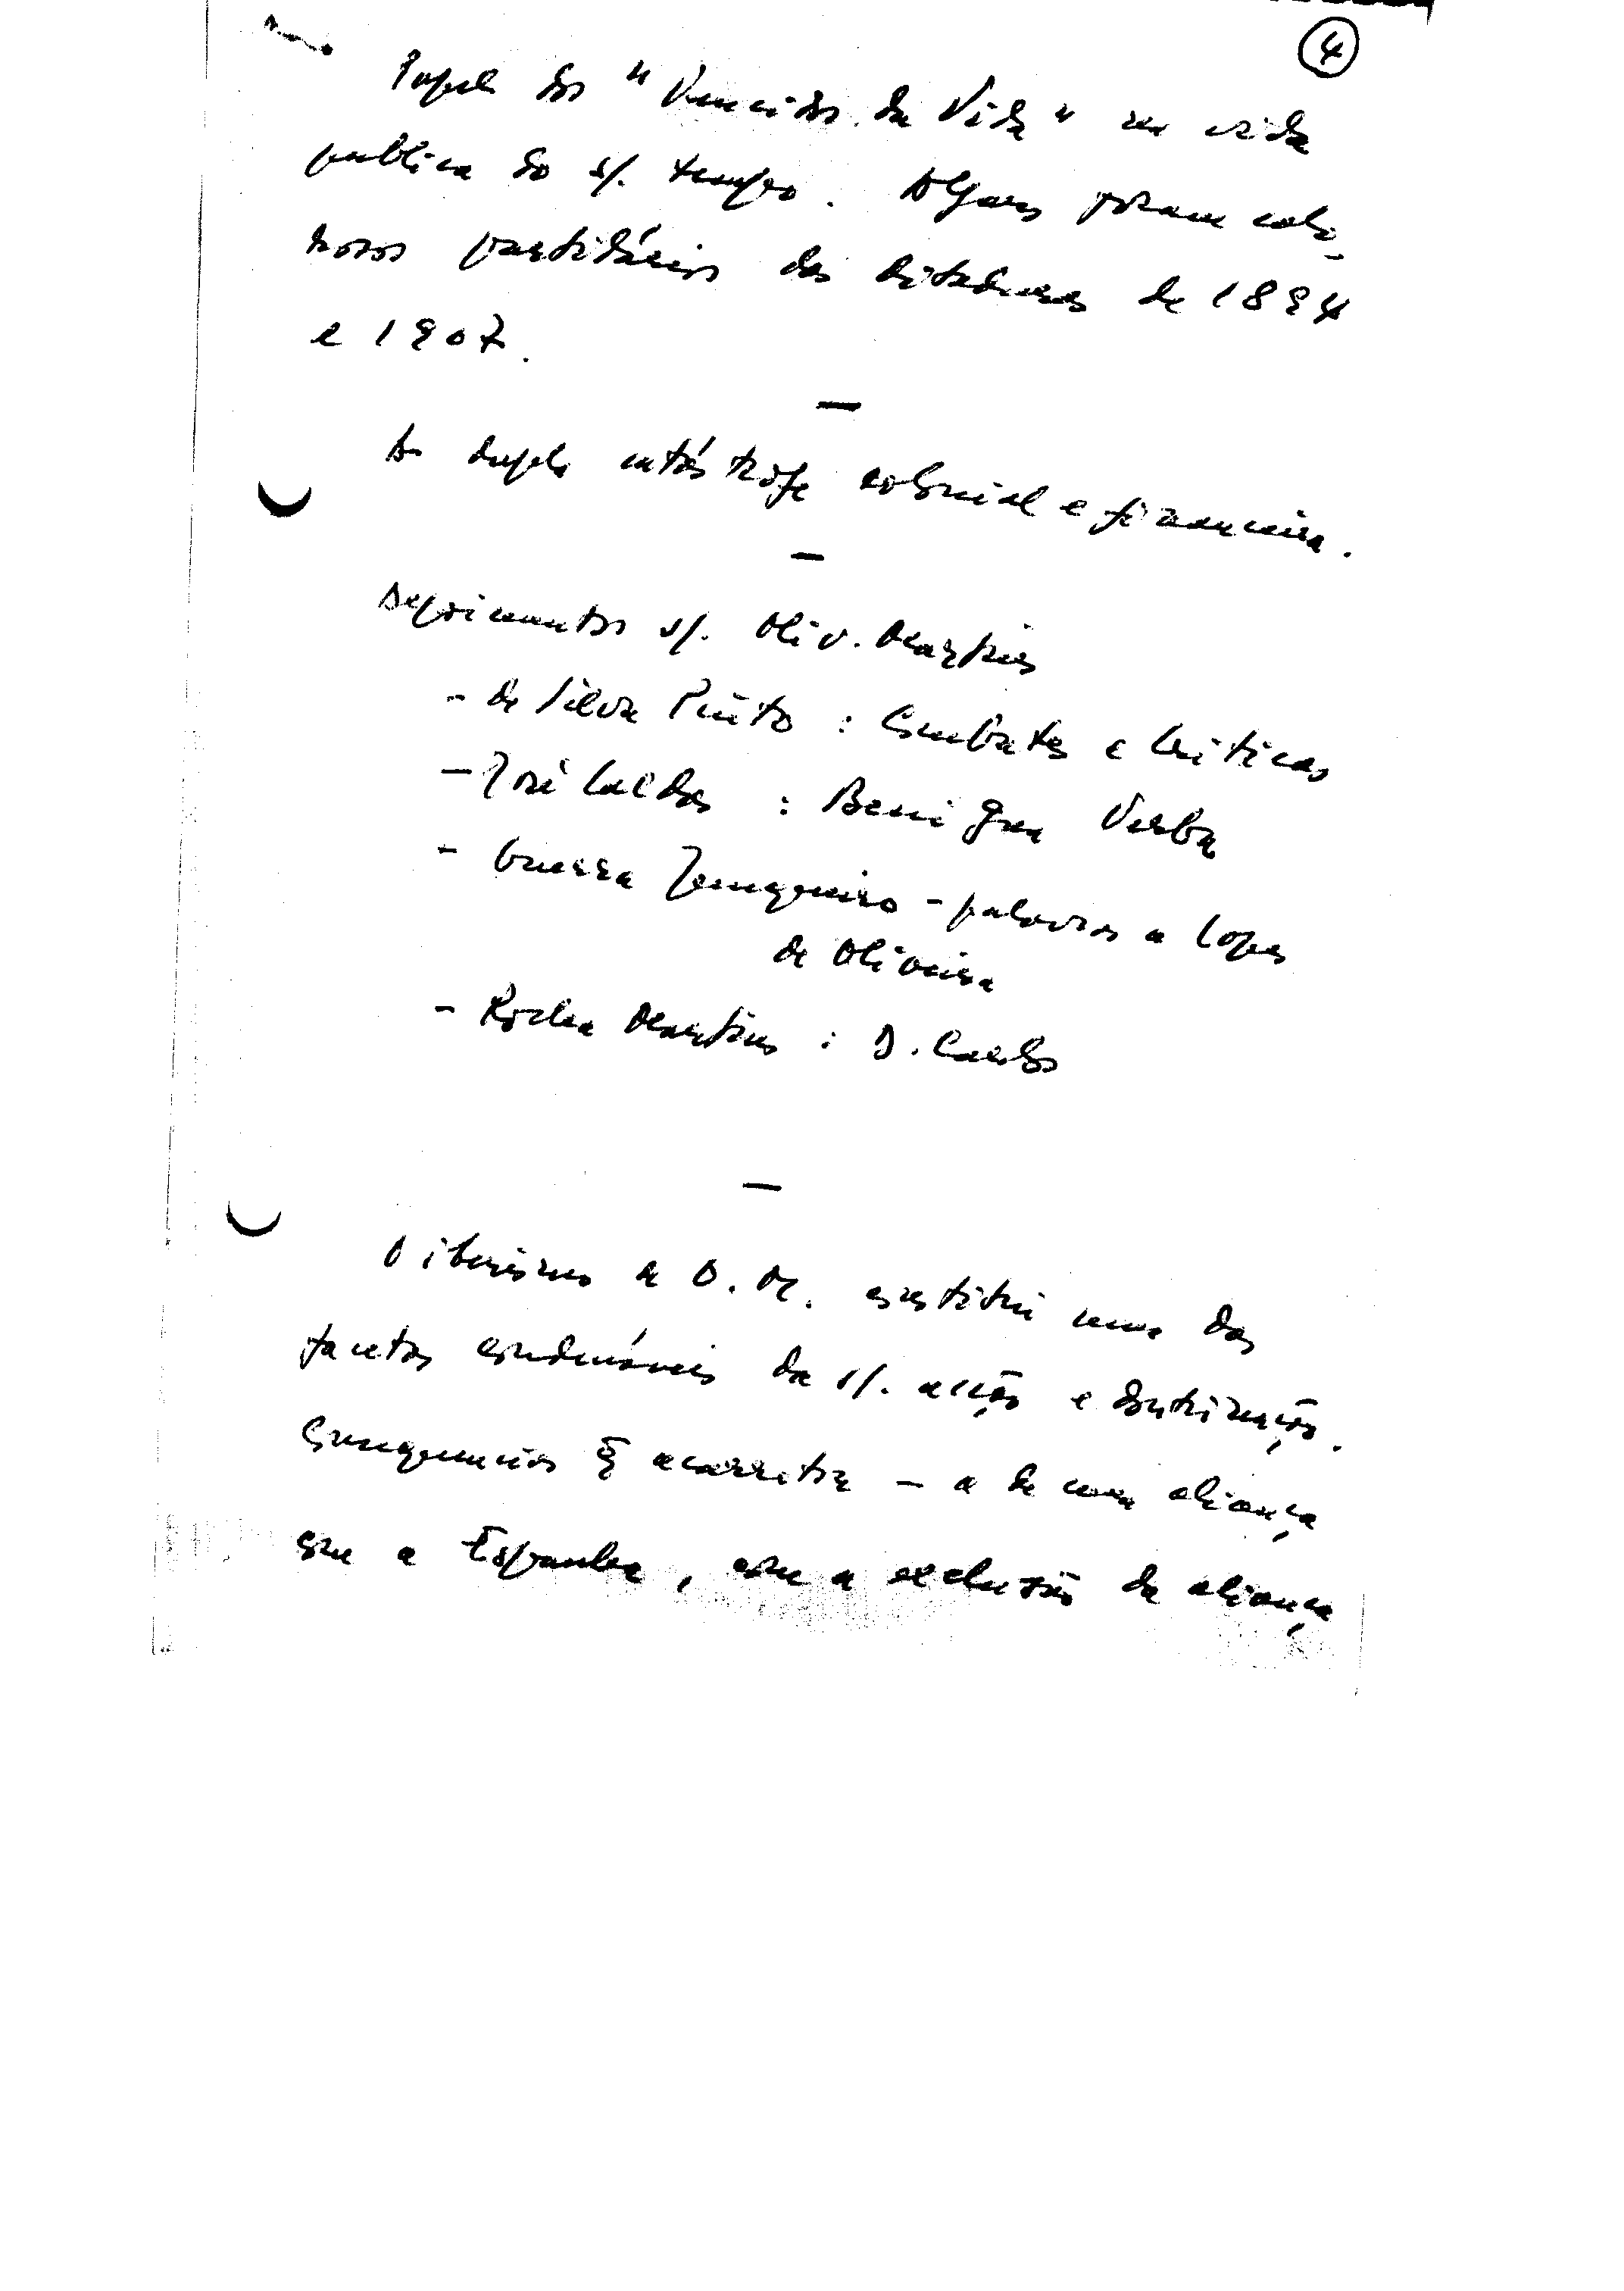 4
Papel dos "Vencidos da Vida" na vida
publica do s/. tempo. Alguns foram calo-
rosos partidários das ditaduras de 1894
e 1907.
—
A dupla catástrofe colonial e financeira.
—
Depoimentos s/. Oliv. Martins
- de Silva Pinto : Combates e Criticas
- José Caldas : Benigna Verba
- Guerra Junqueiro - palavras a Lopes
de Oliveira
- Rocha Martins : D. Carlos
—
O iberismo de O. M. constitui uma das
facetas condenáveis da s/. acção e doutrinação.
Consequencias q̃ acarreta - a de uma aliança
com a Espanha, com a exclusão da aliança